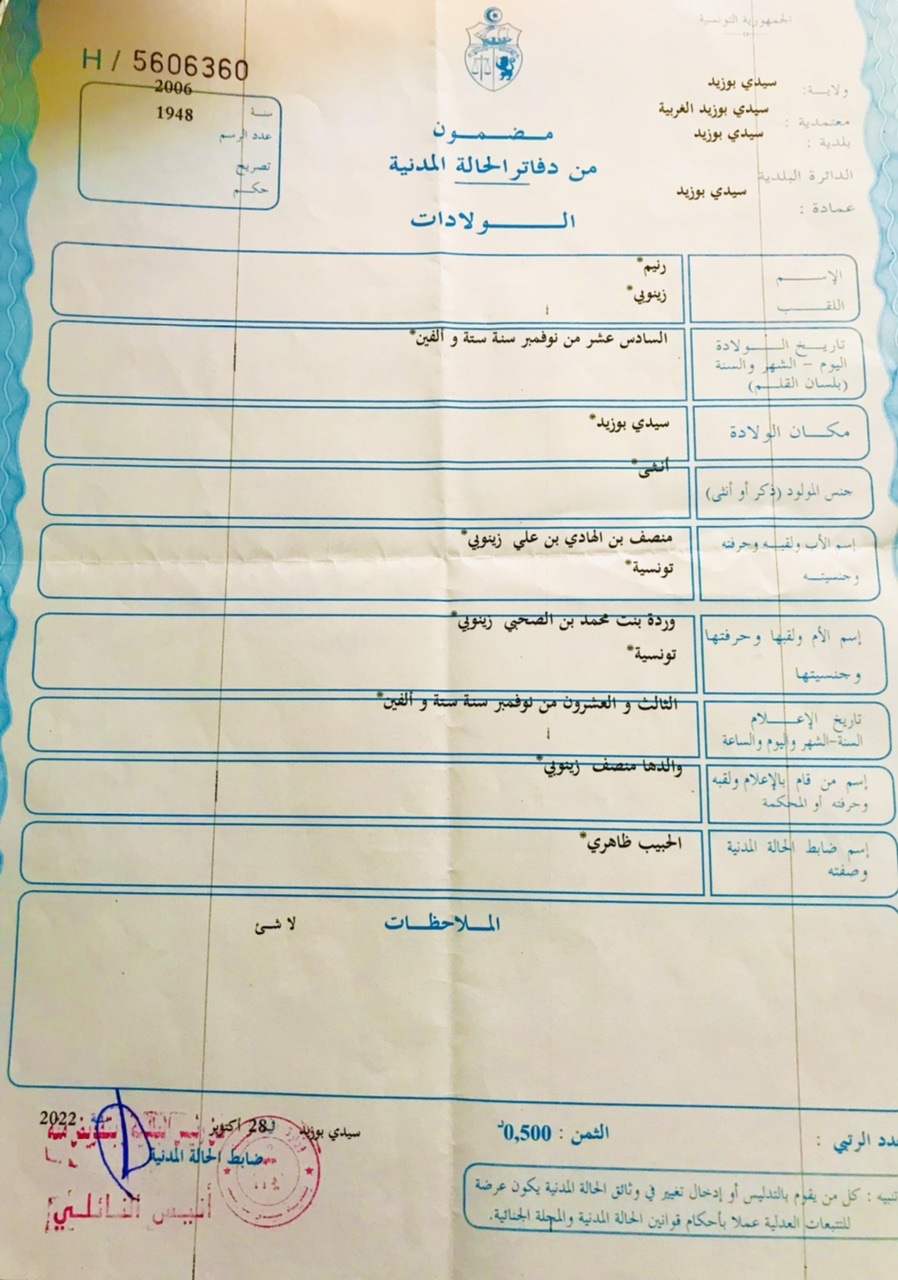 الجمهورية التونسية
H / 5606360
ولاية: سيدي بوزيد
معتمدية : سيدي بوزيد الغربية
بلدية : سيدي بوزيد
الدائرة البلدية
عمادة : سيدي بوزيد
سنة 2006
عدد الرسم 1948
تصريح
حكم
مضمون
من دفاتر الحالة المدنية
الولادات
الإسم رنيم*
اللقب زينوبي*
تاريخ الولادة السادس عشر من نوفمبر سنة ستة و ألفين*
اليوم - الشهر والسنة
(بلسان القلم)
مكان الولادة سيدي بوزيد*
جنس المولود (ذكر أو أنثى) أنثى*
إسم الأب ولقبه وحرفته منصف بن الهادي بن علي زينوبي*
وجنسيته تونسية*
إسم الأم ولقبها وحرفتها وردة بنت محمد بن الصحبي زينوبي*
وجنسيتها تونسية*
تاريخ الإعلام الثالث و العشرون من نوفمبر سنة ستة و ألفين*
السنة-الشهر واليوم والساعة
إسم من قام بالإعلام ولقبه والدها منصف زينوبي*
وحرفته أو المحكمة
إسم ضابط الحالة المدنية الحبيب ظاهري*
وصفته
الملاحظات لا شئ
عدد الرتبي : الثمن : 0,500د
سيدي بوزيد 28 أكتوبر 2022
ضابط الحالة المدنية
أنيس النائلي
تنبيه : كل من يقوم بالتدليس أو إدخال تغيير في وثائق الحالة المدنية يكون عرضة
للتتبعات العدلية عملا بأحكام قوانين الحالة المدنية والمجلة الجنائية.